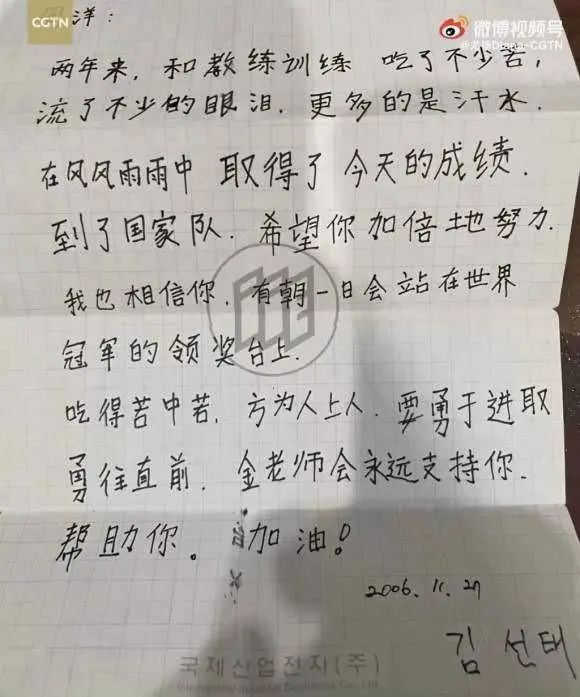 CGTN
微博视频号
Diana-CGTN
洋：
两年来，和教练训练 吃了不少苦，
流了不少的眼泪．更多的是汗水．
在风风雨雨中 取得了 今天的成绩．
到了国家队．希望你加倍地努力．
我也相信你．有朝一日会站在世界
冠军的领奖台上．
吃得苦中苦，方为人上人．要勇于进取
勇往直前．金老师会永远支持你．
帮助你。加油！
2006.11.27
김선태
국제산업전자(주)
International Industrial Electronics Co., Ltd